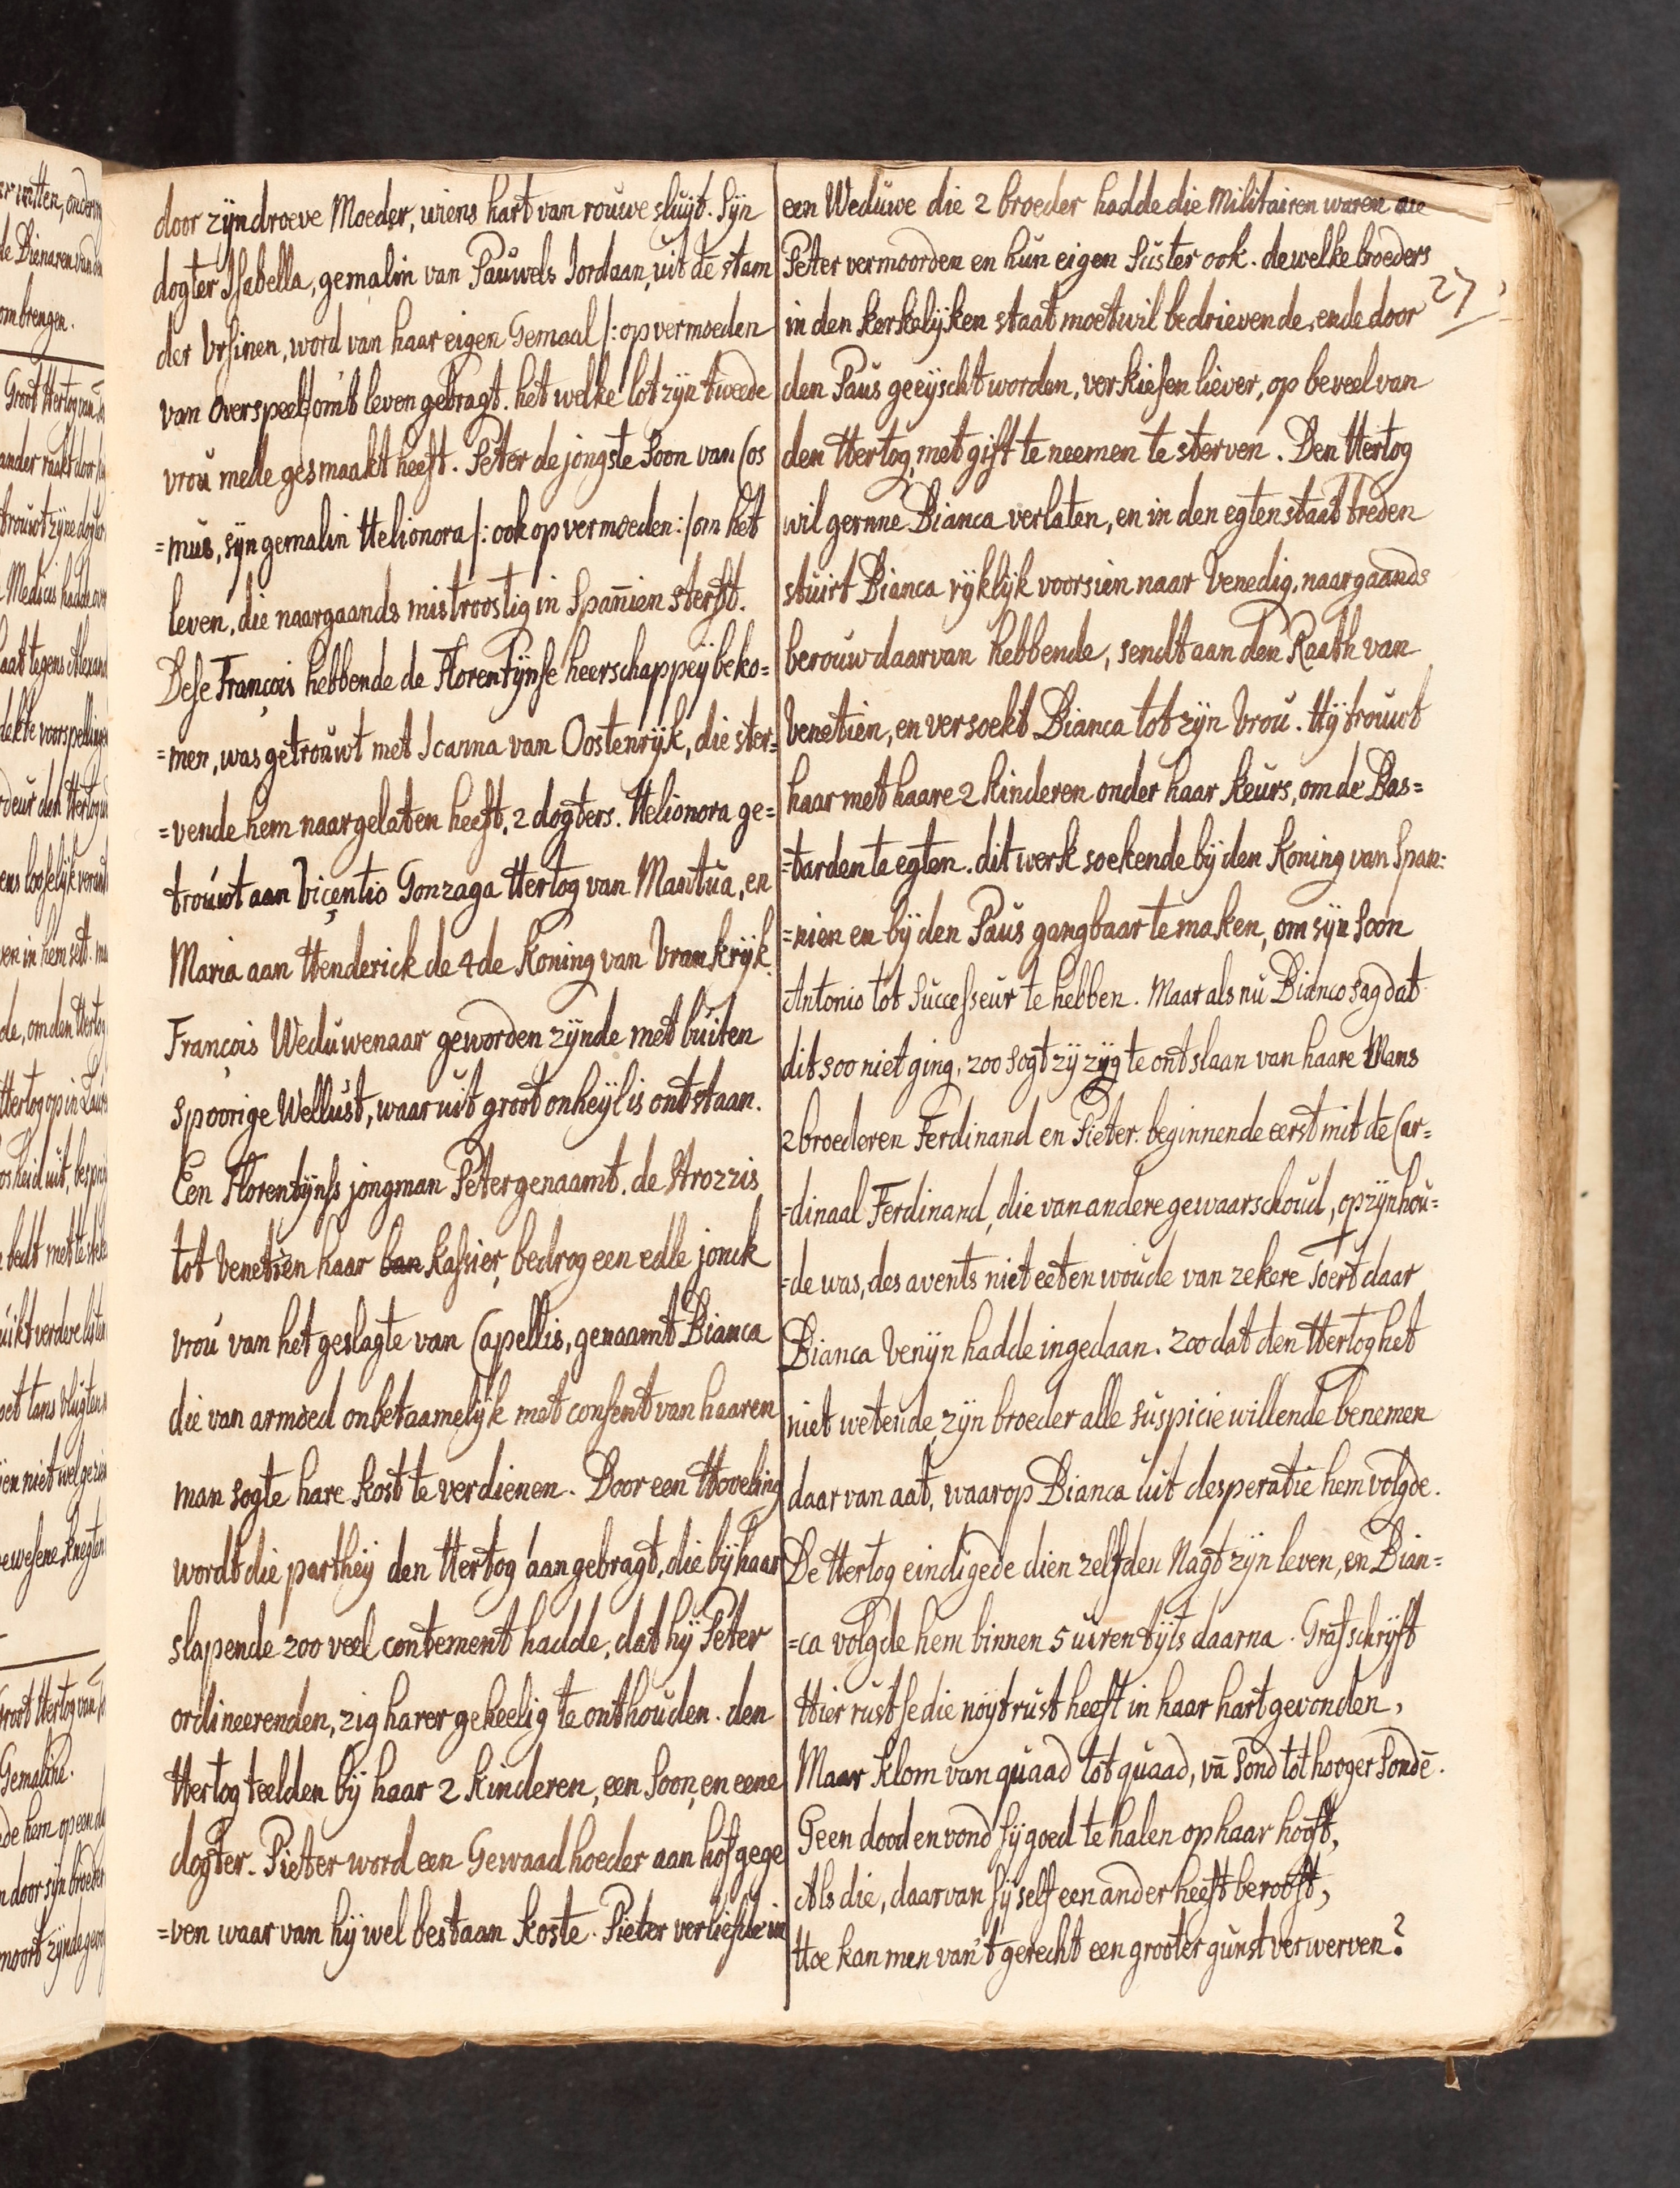 door zijn droeve Moeder, wiens hart van rouwe sluijt. Sijn
dogter Isabella, gemalin van Pauwels Iordaan, uit de stam
der Vrsinen, word van haar eigen Gemaal /: op vermoeden
van Overspeel:/ om't leven gebragt. het welke lot zijn tweede
vrou mede gesmaakt heeft. Peter de jongste Soon van Cos
=mus, sijn gemalin Helionora /: ook op vermoeden:/ om het
leven, die naargaands mistroostig in Spanien sterft.
Dese François hebbende de Florentijnse heerschappeij beko=
=men, was getrouwt met Ioanna van Oostenrijk, die ster=
=vende hem naargelaten heeft, 2 dogters. Helionora ge=
trouwt aan Viçentio Gonzaga Hertog van Mantua, en
Maria aan Henderick de 4de Koning van Vrankrijk.
François Weduwenaar geworden zijnde met buiten
spoorige Wellust, waar uit groot onheijl is ontstaan.
Een Florentijnss jongman Peter genaamt. de Strozzis
tot Venetien haar ban Kassier, bedrog een edle jonck
vrou van het geslagte van Capellis, genaamt Bianca
die van armoed onbetaamelijk met consent van haaren
man sogte hare kost te verdienen. Door een Hoveling
wordt die partheij den Hertog aangebragt, die bij haar
slapende zoo veel contement hadde, dat hij Peter
ordineerenden, zig harer geheelig te onthouden. den
Hertog teelden bij haar 2 kinderen, een Soon, en eene
dogter. Pieter word een Gewaadhoeder aan hof gege
=ven waar van hij wel bestaan koste. Pieter verliefde in
een Weduwe die 2 broeder hadde die Militairen waren die
Peter vermoorden en hun eigen Suster ook. dewelke broeders
27
in den kerkelijken staat moetwil bedrievende, ende door
den Paus geeijscht worden, verkiesen liever, op beveel van
den Hertog, met gift te neemen te sterven. Den Hertog
wil gernne Bianca verlaten, en in den egten staat treden
stuirt Bianca rijklijk voorsien naar Venedig, naargaands
berouw daarvan hebbende, sendt aan den Raath van
Venetien, en versoekt Bianca tot zijn Vrou. Hij trouwt
haar met haare 2 kinderen onder haar keurs, om de Bas=
=tarden te egten. dit werk soekende bij den Koning van Span=
=nien en bij den Paus gangbaar te maken, om sijn Soon
Antonio tot Successeur te hebben. Maar als nu Bianco sag dat
dit soo niet ging, zoo sogt zij zijg te ontslaan van haare Mans
2 broederen Ferdinand en Pieter. beginnende eerst mit de Car=
=dinaal Ferdinand, die van andere gewaarschoud, op zijn hou=
=de was, des avents niet eeten woude van zekere soert daar
Bianca Venijn hadde ingedaan. zoo dat den Hertog het
niet wetende, zijn broeder alle suspicie willende benemen
daar van aat, waarop Bianca uit desperatie hem volgde.
De Hertog eindigede dien zelfden Nagt zijn leven, en Bian=
=ca volgde hem binnen 5 uiren tijts daarna. Grafschrijft
Hier rust se die noijt rust heeft in haar hart gevonden,
Maar klom van quaad tot quaad, vā Sond tot hooger Sondē.
Geen dood en vond sij goed te halen op haar hooft,
Als die, daar van sij self een ander heeft berooft,
Hoe kan men van't gerecht een grooter gunst verwerven?